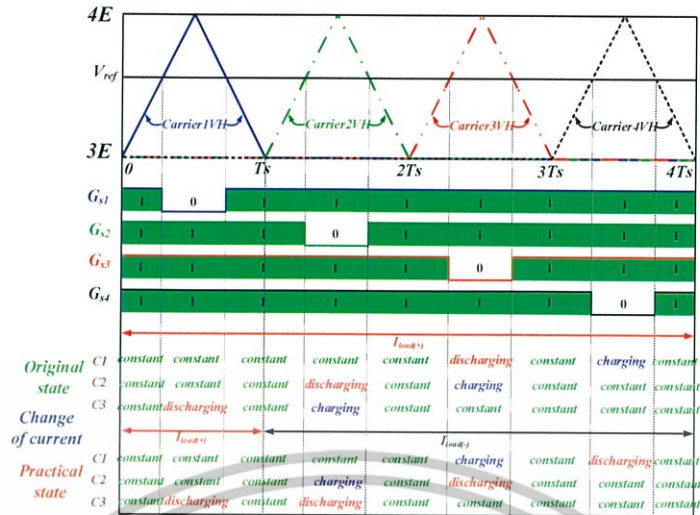 4E
Vref
Carrier1VH Carrier2VH Carrier3VH Carrier4VH
3E
0 Ts 2Ts 3Ts 4Ts
Gs1 1 0 1 1 1 1 1 1 1
Gs2 1 1 1 0 1 1 1 1 1
Gs3 1 1 1 1 1 0 1 1 1
Gs4 1 1 1 1 1 1 1 0 1
Iload(+)
Original state
C1 constant constant constant constant constant discharging constant charging constant
C2 constant constant constant discharging constant charging constant constant constant
C3 constant discharging constant charging constant constant constant constant constant
Change of current
Iload(+) Iload(-)
Practical state
C1 constant constant constant constant constant charging constant discharging constant
C2 constant constant constant charging constant discharging constant constant constant
C3 constant discharging constant discharging constant constant constant constant constant